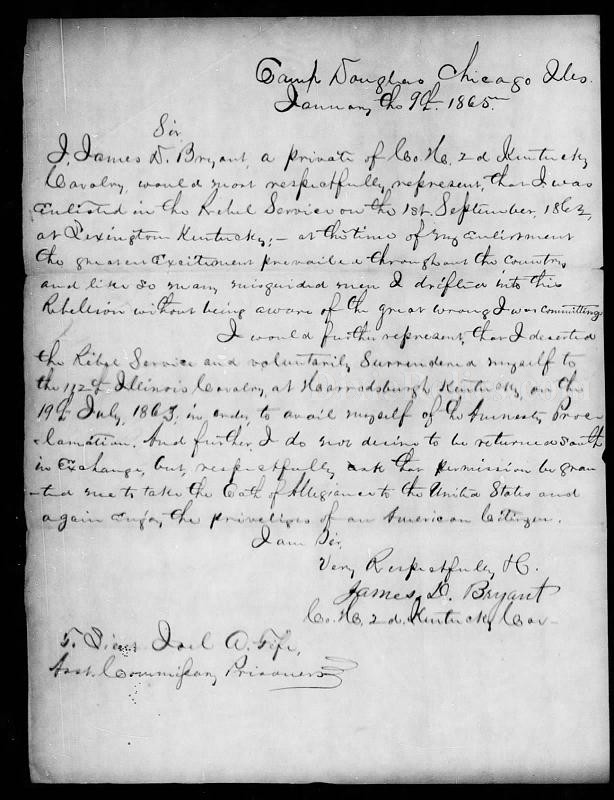 Camp Douglas Chicago Ills.
January the 9th. 1865.
Sir
I, James D. Bryant, a private of Co. H, 2d Kentucky
Cavalry, would most respectfully represent, that I was
enlisted in the Rebel Service on the 1st. September, 1862,
at Lexington Kentucky; – at the time of my Enlistment
the greatest Excitement prevailed throughout the Country,
and like so many misguided men I drifted into this
Rebellion without being aware of the great wrong I was committing
I would further represent, that I deserted
the Rebel Service and voluntarily Surrendered myself to
the 112th Illinois Cavalry, at Harrodsburgh Kentucky, on the
19th July, 1863, in order to avail myself of the Amnesty Proc-
-lamation. And further, I do not desire to be returned South
in Exchange, but, respectfully ask that permission be gran
-ted me to take the Oath of Allegiance to the United States and
again enjoy the priveliges of an American Citizen.
I am Sir,
Very Respectfully &c.
James, D. Bryant
Co. H, 2d. Kentucky Cav–
To Lieut Joel A. Fife,
Asst. Commissary Prisoners